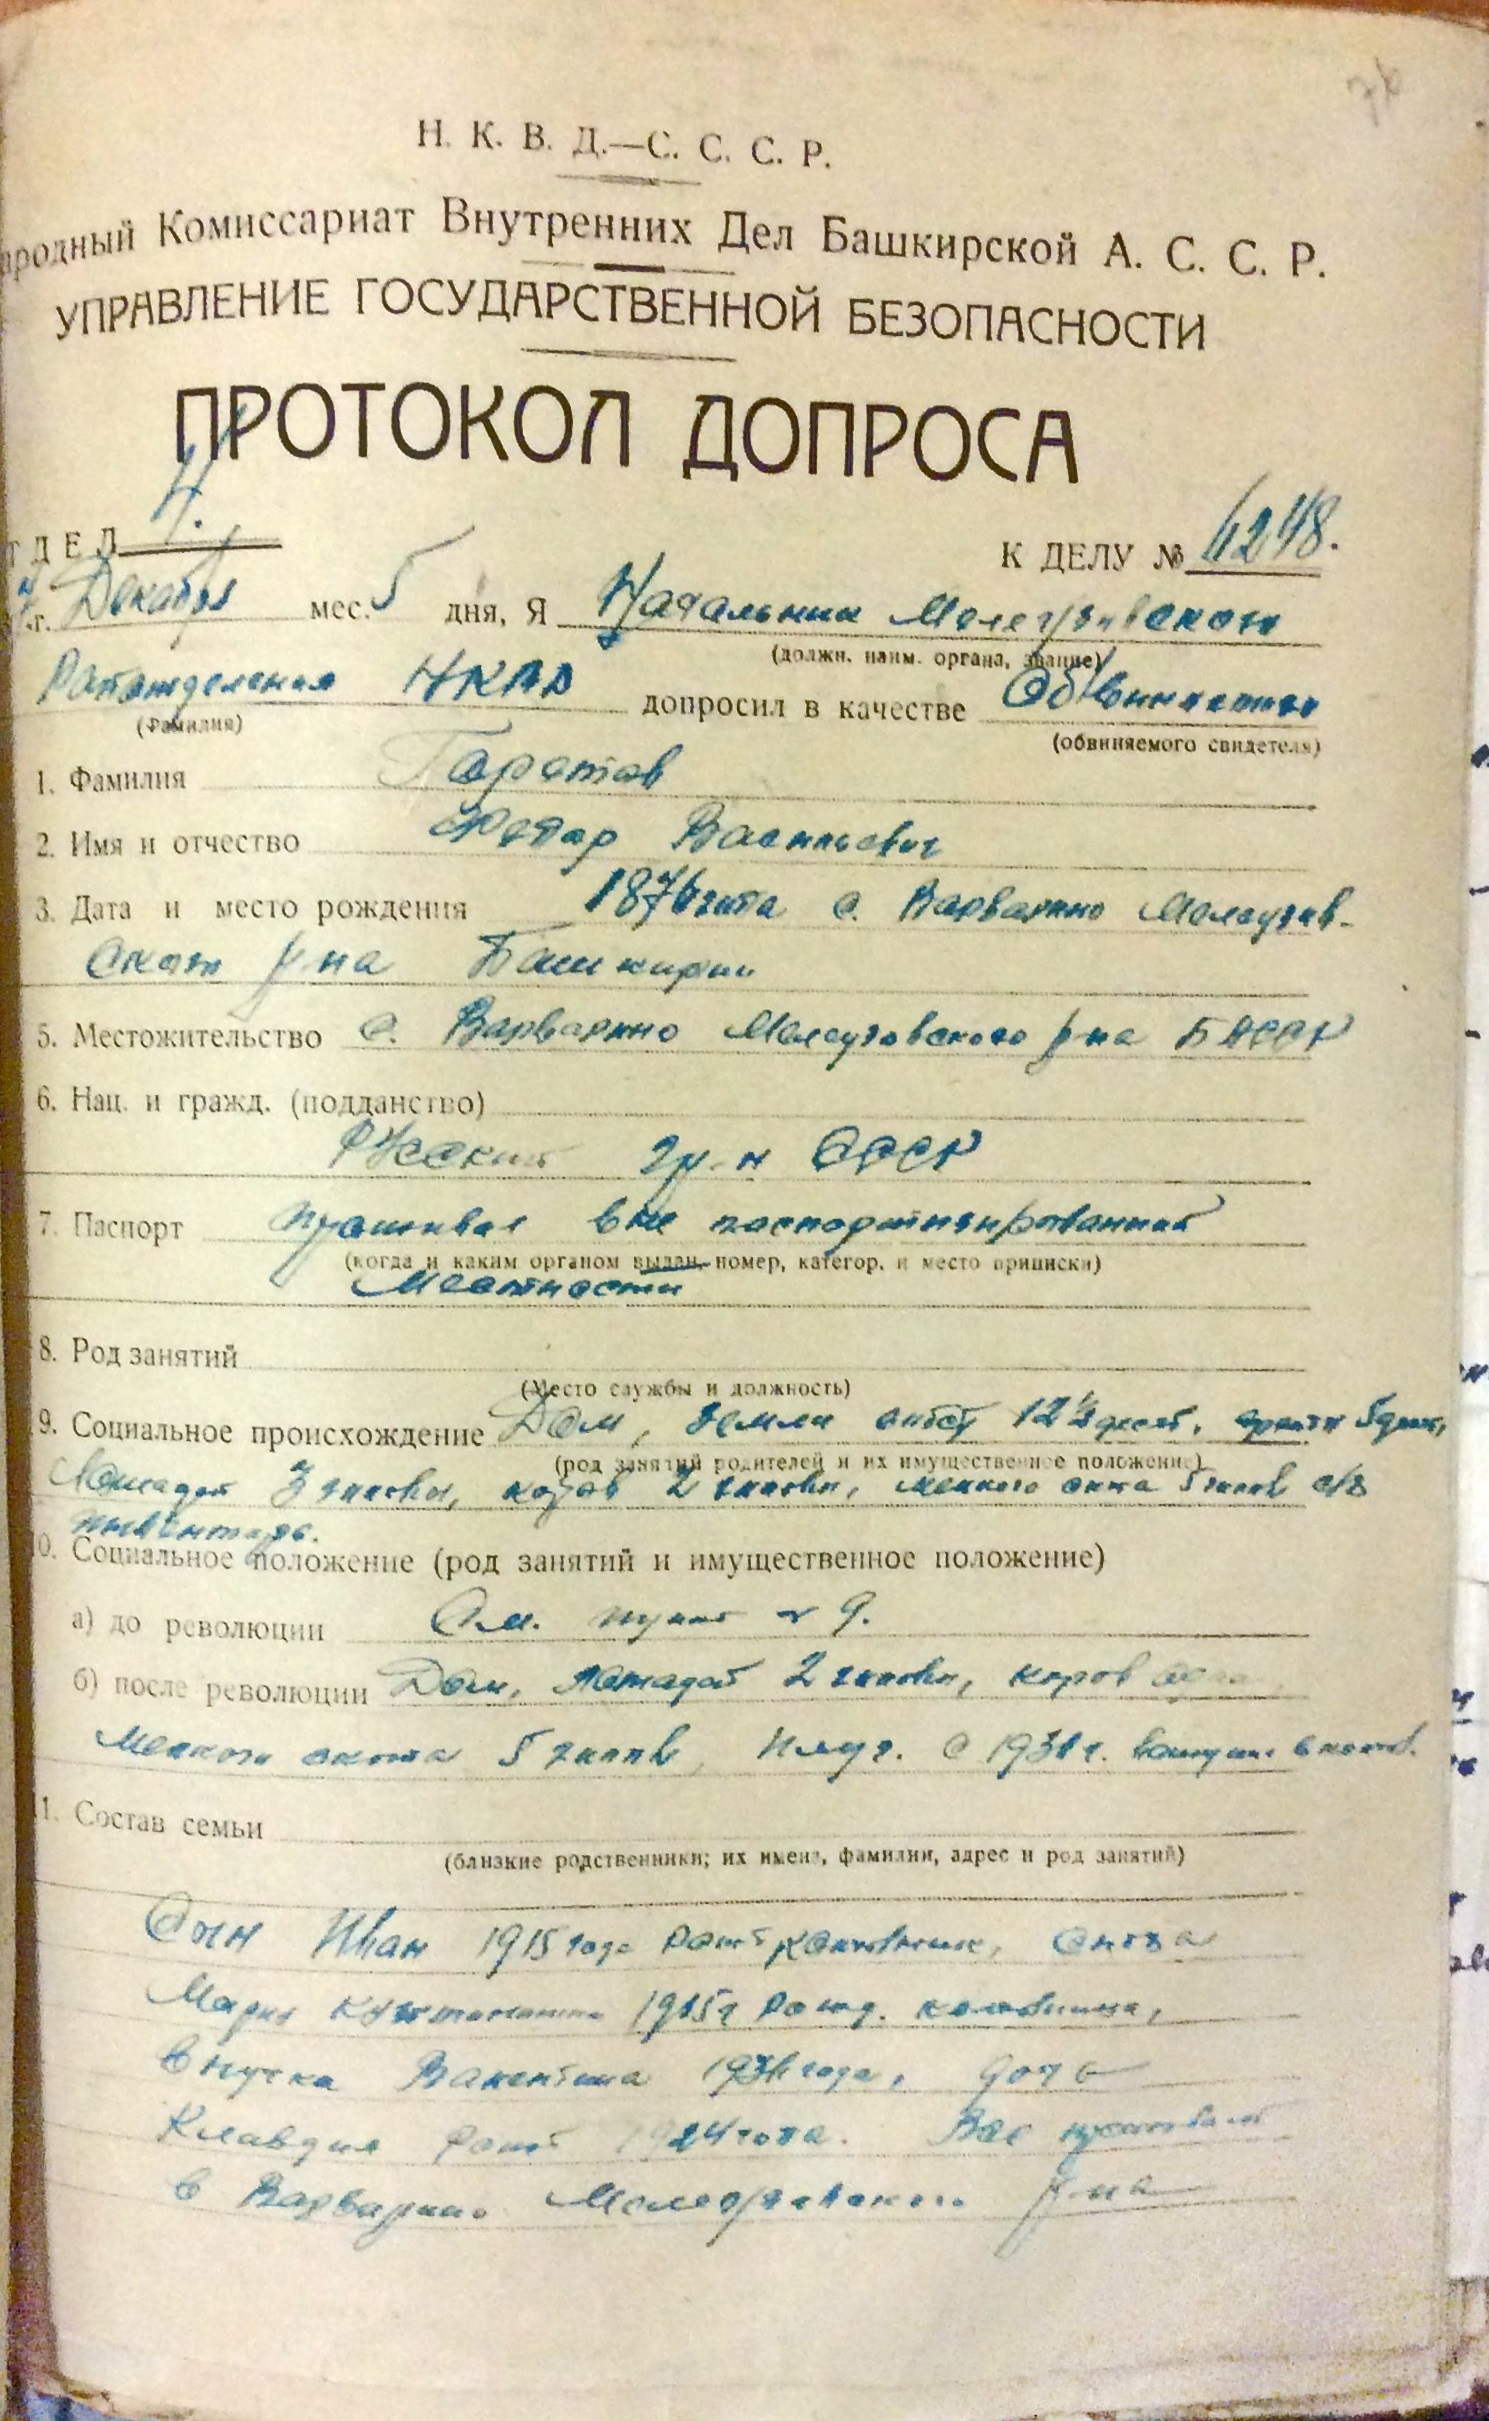 Н. К. В. Д.—С. С. С. Р.
ародный Комиссариат Внутренних Дел Башкирской А. С. С. Р.
УПРАВЛЕНИЕ ГОСУДАРСТВЕННОЙ БЕЗОПАСНОСТИ
ПРОТОКОЛ ДОПРОСА
ТДЕЛ 4. К ДЕЛУ № 6248.
г. Декабря мес. 5 дня, Я Начальник Мелеузовского
(должн. наим. органа, звание)
Райотделения НКВД допросил в качестве Обвиняемого
(Фамилия) (обвиняемого свидетеля)
1. Фамилия
2. Имя и отчество Федор Васильевич
3. Дата и место рождения 1876 года с. Варварино Мелеузов-
ского р-на Башкирии
5. Местожительство с. Варварино Мелеузовского р-на БАССР
6. Нац. и гражд. (подданство)
Русский гр-н СССР
7. Паспорт проживал в не паспортизированной
(когда и каким органом выдан, номер, категор. и место приписки)
местности
8. Род занятий
(Место службы и должность)
9. Социальное происхождение Дом, земли 12 ½ десят.
(род занятий родителей и их имущественное положение)
Лошадей 3 головы, коров 2 головы, мелкого скота 5 голов с/х
инвентарь.
0. Социальное положение (род занятий и имущественное положение)
а) до революции См. пункт 9.
б) после революции Дом, лошадей 2 головы, коров одна
мелкого скота 5 голов, плуг. С 1931 г. вступил в колхоз.
1. Состав семьи
(близкие родственники; их имена, фамилии, адрес и род занятий)
Сын Иван 1915 года рожд колхозник, сноха
Мария 1915 г рожд. колхозница,
внучка Валентина года, дочь
Клавдия рожд 1924 года. Все проживают
в Варварино Мелеузовского р-на